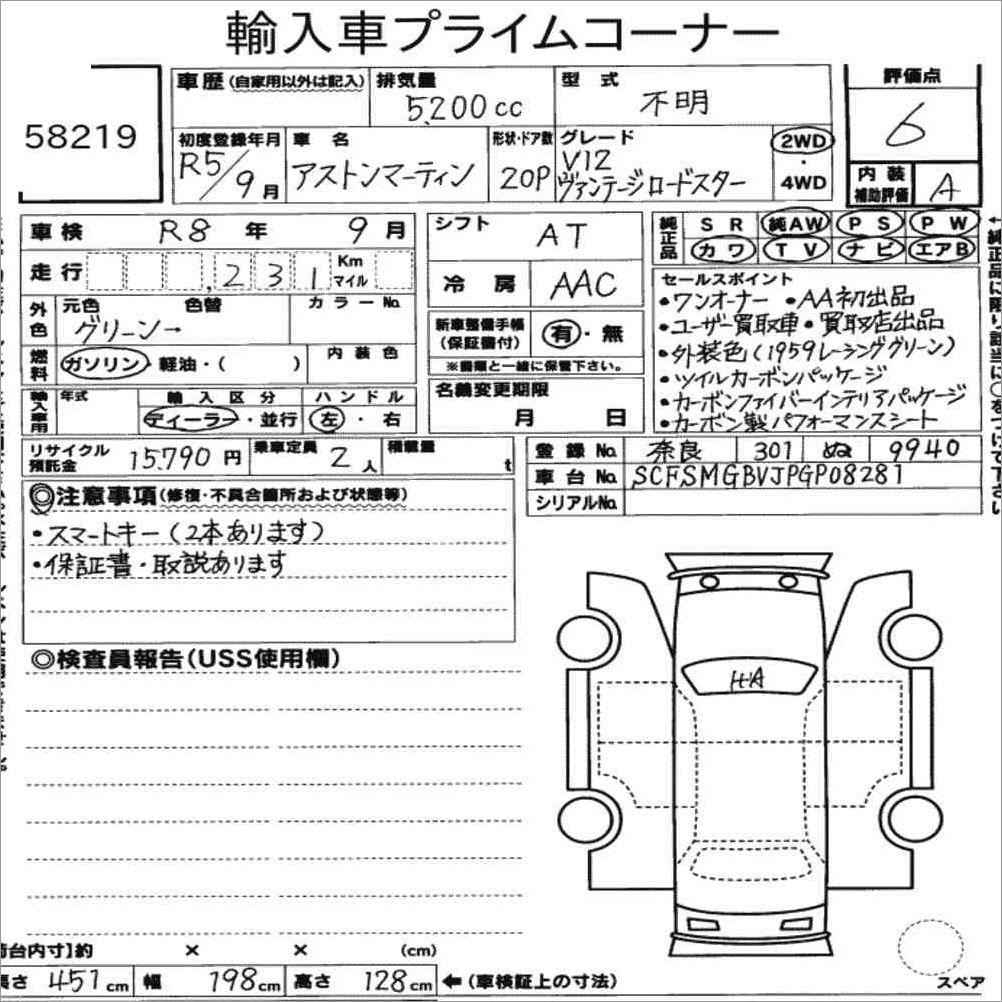 輸入車プライムコーナー
58219
車歴(自家用以外は記入) 排気量 5,200cc 型式 不明 評価点 6
初度登録年月 R5/9月 車名 アストンマーティン 形状・ドア数 20P グレード V12 ヴァンテージロードスター 2WD・4WD 内装補助評価 A
車検 R8年 9月 シフト AT 純正品 SR 純AW PS PW
カワ TV ナビ エアB
走行 ,231 Km マイル 冷房 AAC
外色 元色 グリーン→ 色替 カラーNo.
燃料 ガソリン・軽油・( ) 内装色
新車整備手帳(保証書付) 有・無
※書類と一緒に保管下さい。
輸入車用 年式 輸入区分 ディーラー・並行 ハンドル 左・右
名義変更期限 月 日
セールスポイント
・ワンオーナー ・AA初出品
・ユーザー買取車・買取店出品
・外装色(1959レーシンググリーン)
・ツイルカーボンパッケージ
・カーボンファイバーインテリアパッケージ
・カーボン製パフォーマンスシート
リサイクル預託金 15,790円 乗車定員 2人 積載量 t
登録No. 奈良 301 ぬ 9940
車台No. SCFSMGBVJPGP08281
シリアルNo.
◎注意事項(修復・不具合箇所および状態等)
・スマートキー(2本あります)
・保証書・取説あります
◎検査員報告(USS使用欄)
H-A
台内寸】約 × × (cm)
長さ 451cm 幅 198cm 高さ 128cm ←(車検証上の寸法)
スペア